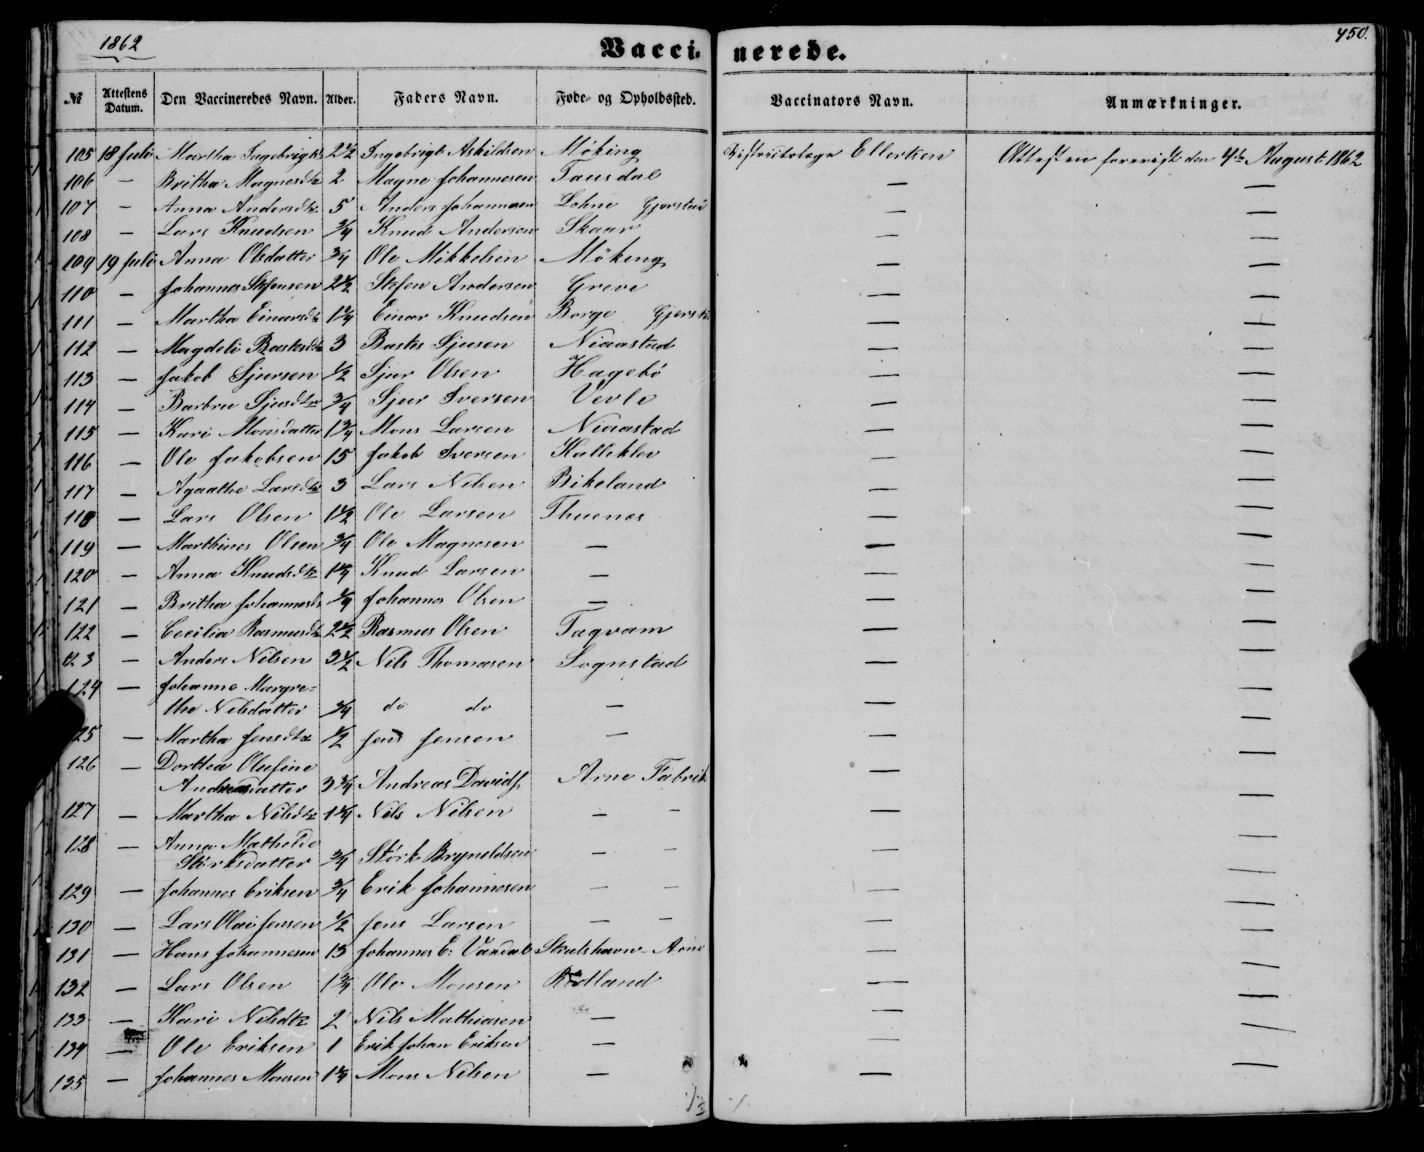 1862 Vaccinerede. 450.
№ Attestens Datum. Den Vaccineredes Navn. Alder. Faders Navn. Føde- og Opholdssted. Vaccinators Navn. Anmærkninger.
105 18 Juli Martha Ingebrigtsd 2½ Ingebrigt Askildsen Møking Districtslæge Ellertsen Attesten foreviist den 4de August 1862
106 — Britha Magnesdtr 2 Magne Johannesen Tausdal — —
107 — Anna Andersdtr 5 Anders Johannesen Lohne Gjerstad — —
108 — Lars Knudsen ¾ Knud Andersen Skaar — —
109 19 Juli Anna Olsdatter ¾ Ole Mikkelsen Møking — —
110 — Johannes Stefensen 2½ Stefen Andersen Greve — —
111 — Martha Einarsdtr 1¼ Einar Knudsen Borge Gjerstad — —
112 — Magdeli Baste­sdtr 3 Baste Sjursen Niaastad — —
113 — Jakob Sjursen ½ Sjur Olsen Hagebø — —
114 — Barbru Sjursdtr ¾ Sjur Iversen Vevle — —
115 — Kari Monsdatter 1¾ Mons Larsen Niaastad — —
116 — Ole Jakobsen 15 Jakob Iversen Kalleklev — —
117 — Agaathe Larsdtr 3 Lars Nilsen Birkeland — —
118 — Lars Olsen 1½ Ole Larsen Thuenes — —
119 — Marthines Olsen ¾ Ole Magnesen — — —
120 — Anna Knudsdtr 1¼ Knud Larsen — — —
121 — Britha Johannesd ¾ Johannes Olsen — — —
122 — Cecilia Rasmusdtr 2½ Rasmus Olsen Tagvam — —
123 — Anders Nilsen 3½ Nils Thomasen Sognstad — —
124 — Johanne Margre=
the Nilsdatter ¾ do do — — —
125 — Martha Jensdtr ½ Jens Jensen — — —
126 — Dorthea Olufine
Andreasdatter 3¾ Andreas Davids. Arne Fabrik — —
127 — Martha Nilsdtr 1¼ Nils Nilsen — — — —
128 — Anna Mathilde
Størksdatter ¾ Størk Brynildsen — — — —
129 — Johannes Eriksen ¾ Erik Johannesen — — — —
130 — Lars Olai Jensen ½ Jens Larsen — — — —
131 — Hans Johannesen 13 Johannes E: Vardal Skulshavn Arne — —
132 — Lars Olsen 1¾ Ole Monsen Rødland — —
133 — Kari Nilsdtr 2 Nils Mathiasen — — —
134 — Ole Eriksen 1 Erik Johan Eriksen — — —
135 — Johannes Monsen 1¼ Mons Nilsen — — —